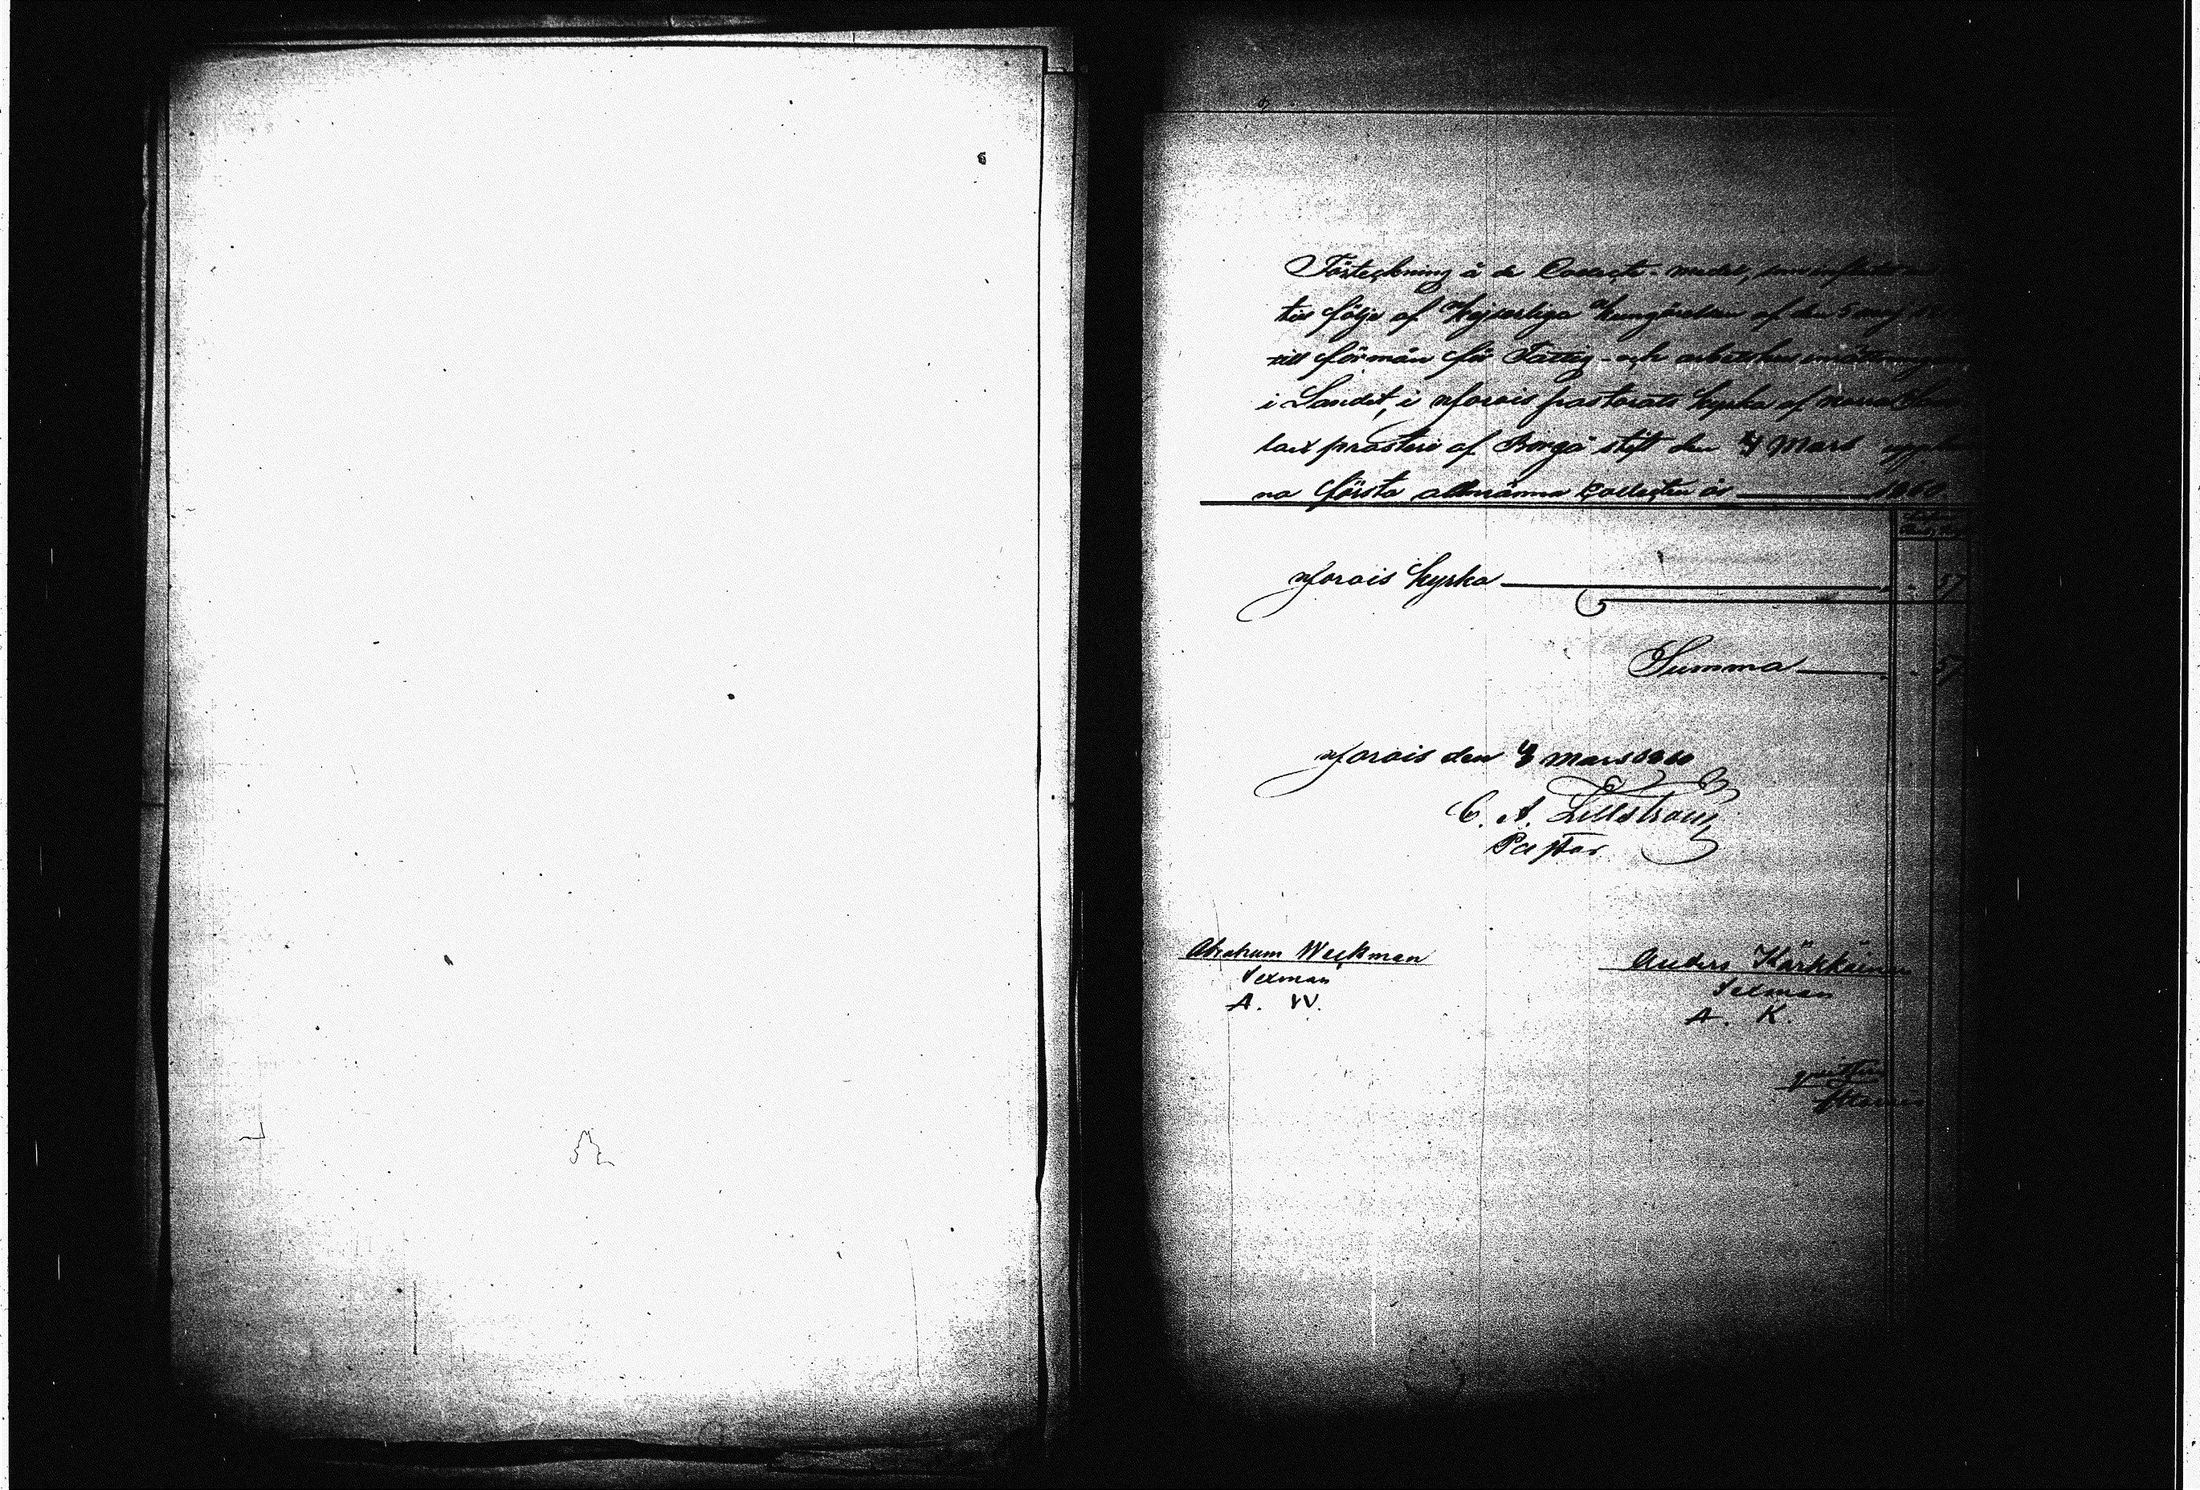 Förteckning å de Collect-medel, som influtit
till följe af Kejserliga Kungörelsen af den 5 maj
till förmån för Fattig- och arbetshus inrättningar
i Landet, i Jorois pastorats kyrka af norra
lax prosteri af Borgå stift den 4 Mars
na första allmänna Collecten år 1860.
Jorois kyrka 57
Summa 57
Jorois den 4 Mars 1860
C. A. Lillström
Pastor
Abraham Weckman
Sexman
A. W.
Anders Kärkkäinen
Sexman
A. K.